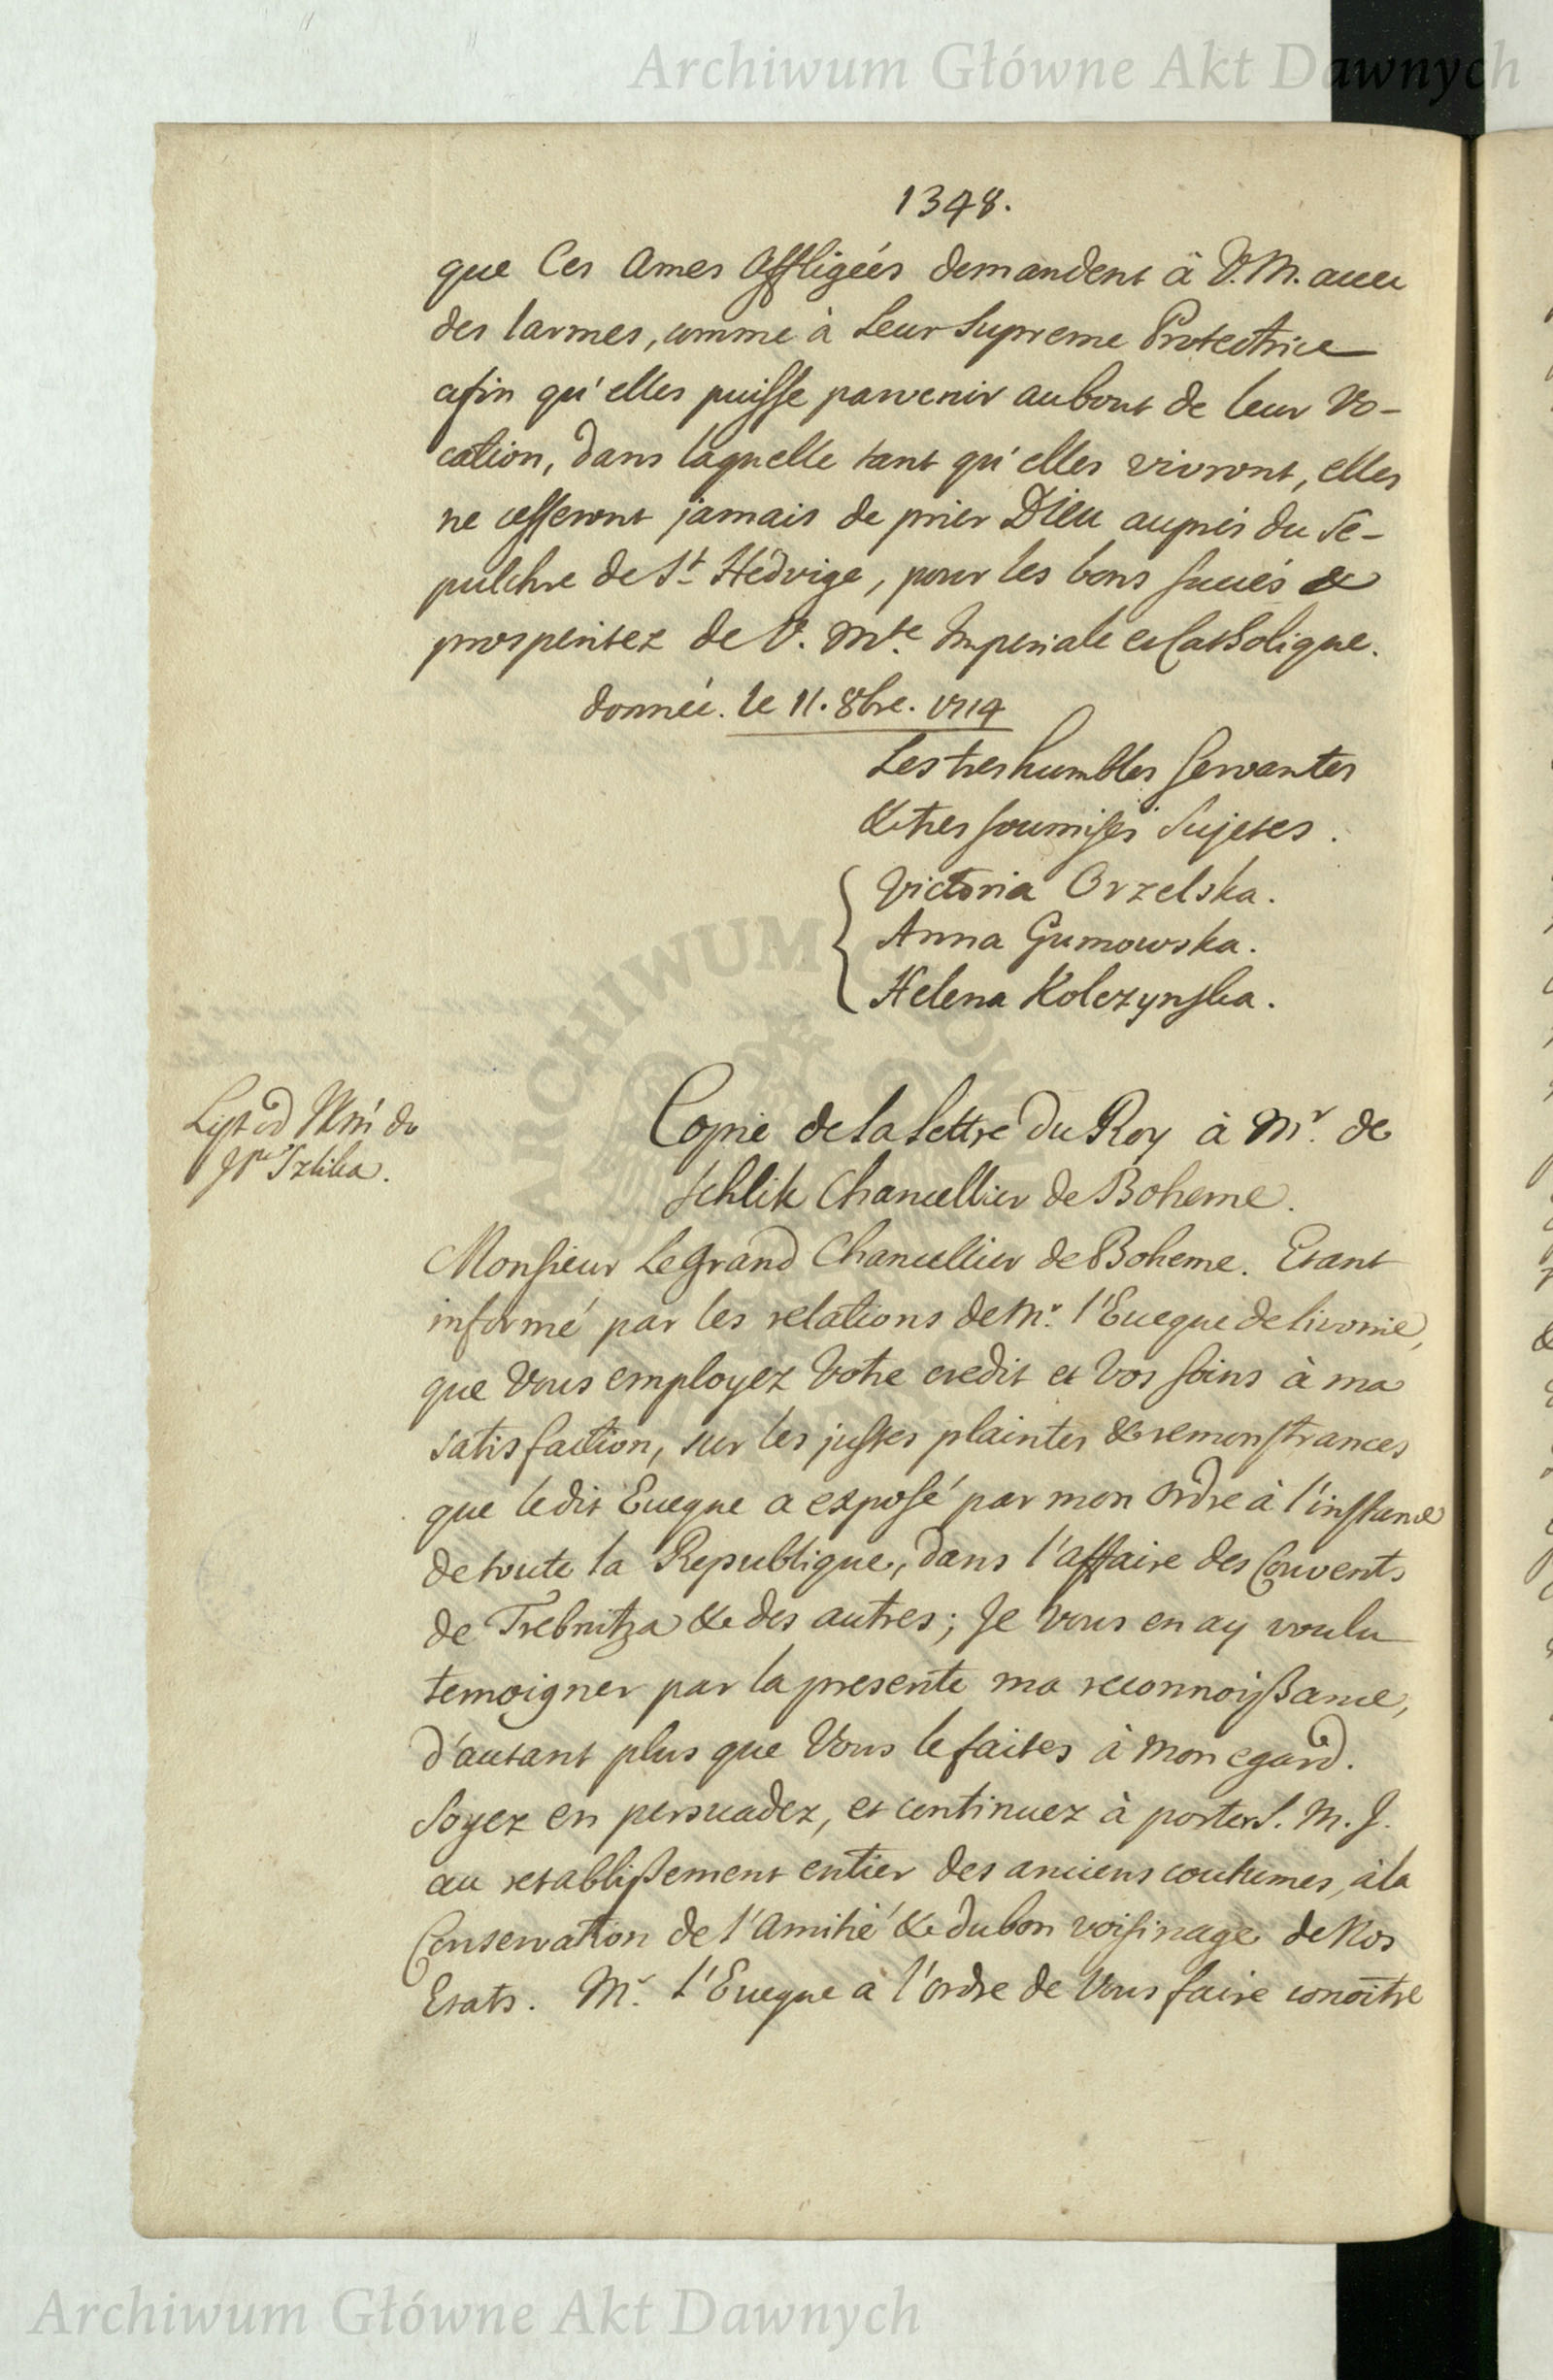 Archiwum Główne Akt Dawnych
1348.
que Ces Ames Affligeés demandent à V. M. avec
des larmes, comme à Leur Supreme Protectrice
afin qu'elles puisse parvenir au bout de leur Vo-
cation, dans laquelle tant qu'elles vivront, elles
ne cesseront jamais de prier Dieu auprés du Se-
pulchre de St Hedvige, pour les bons succés &
prosperitez de V. Mte. Imperiale et Catholique.
donnée. le 11. 8bre. 1714
Les tres humbles servantes
& tres soumises Sujetes.
Victoria Orzelska.
Anna Gumowska.
Helena Kolczynska.
List od Kró do
JP Szlika.
Copie de la lettre du Roy à Mr. de
Schlik Chancellier de Boheme.
Monsieur Le Grand Chancellier de Boheme. Etant
informé par les relations de Mr. l'Eveque de Livonie,
que Vous employez Votre credit et Vos soins à ma
satisfaction, sur les justes plaintes & remonstrances
que ledit Eveque a exposé par mon Ordre à l'instance
de toute la Republique, dans l'affaire des Couvents
de Trebnitza & des autres; Je Vous en ay voulu
temoigner par la presente ma reconnoissance,
d'autant plus que Vous le faites à Mon egard.
Soyez en persuadez, et continuez à porter S. M. J.
au retablissement entier des anciens coutumes, à la
Conservation de l'Amitié & du bon voisinage de Nos
Etats. Mr. l'Eveque a l'ordre de Vous faire conoître
ARCHIWUM GŁÓWNE AKT DAWNYCH
Archiwum Główne Akt Dawnych